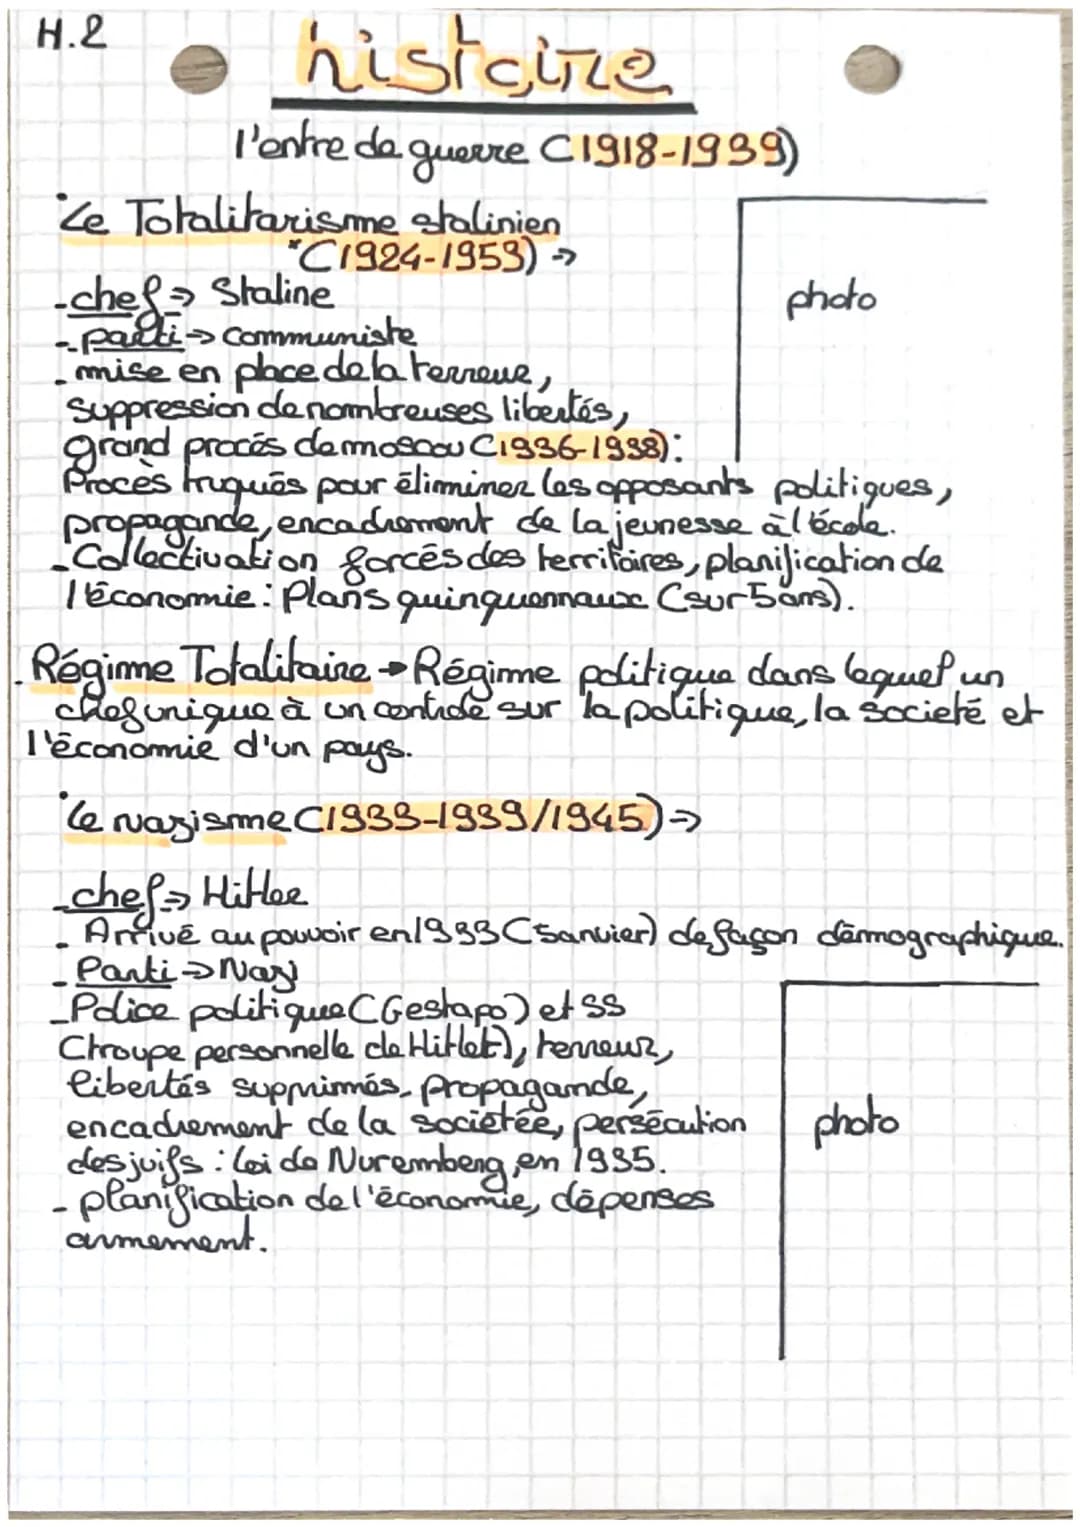 H.2
histoire
l'entre de guerre (1918-1939)
Le Totalitarisme stalinien
"(1924-1953) →
- chef → Staline
photo
- parti → communiste
- mise en place de la terreur,
suppression de nombreuses libertés,
grand procés de moscou (1936-1938):
Procès truqués pour éliminer les opposants politiques,
propagande, encadrement de la jeunesse à l'école.
- Collectivation forcés des territoires, planification de
l'économie: Plans quinquennaux (sur 5 ans).
. Régime Totalitaire → Régime politique dans lequel un
chef unique à un contrôle sur la politique, la societé et
l'économie d'un pays.
Le nazisme (1933-1939/1945) →
- chef → Hitler
- Arrivé au pouvoir en 1933 (Janvier) de façon démographique.
- Parti → Nazi
- Police politique (Gestapo) et SS
(troupe personnelle de Hitlet), terreur,
libertés supprimés, propagande,
encadrement de la sociétée, persécution
photo
des juifs : loi de Nuremberg, en 1935.
- planification de l'économie, dépenses
armement.